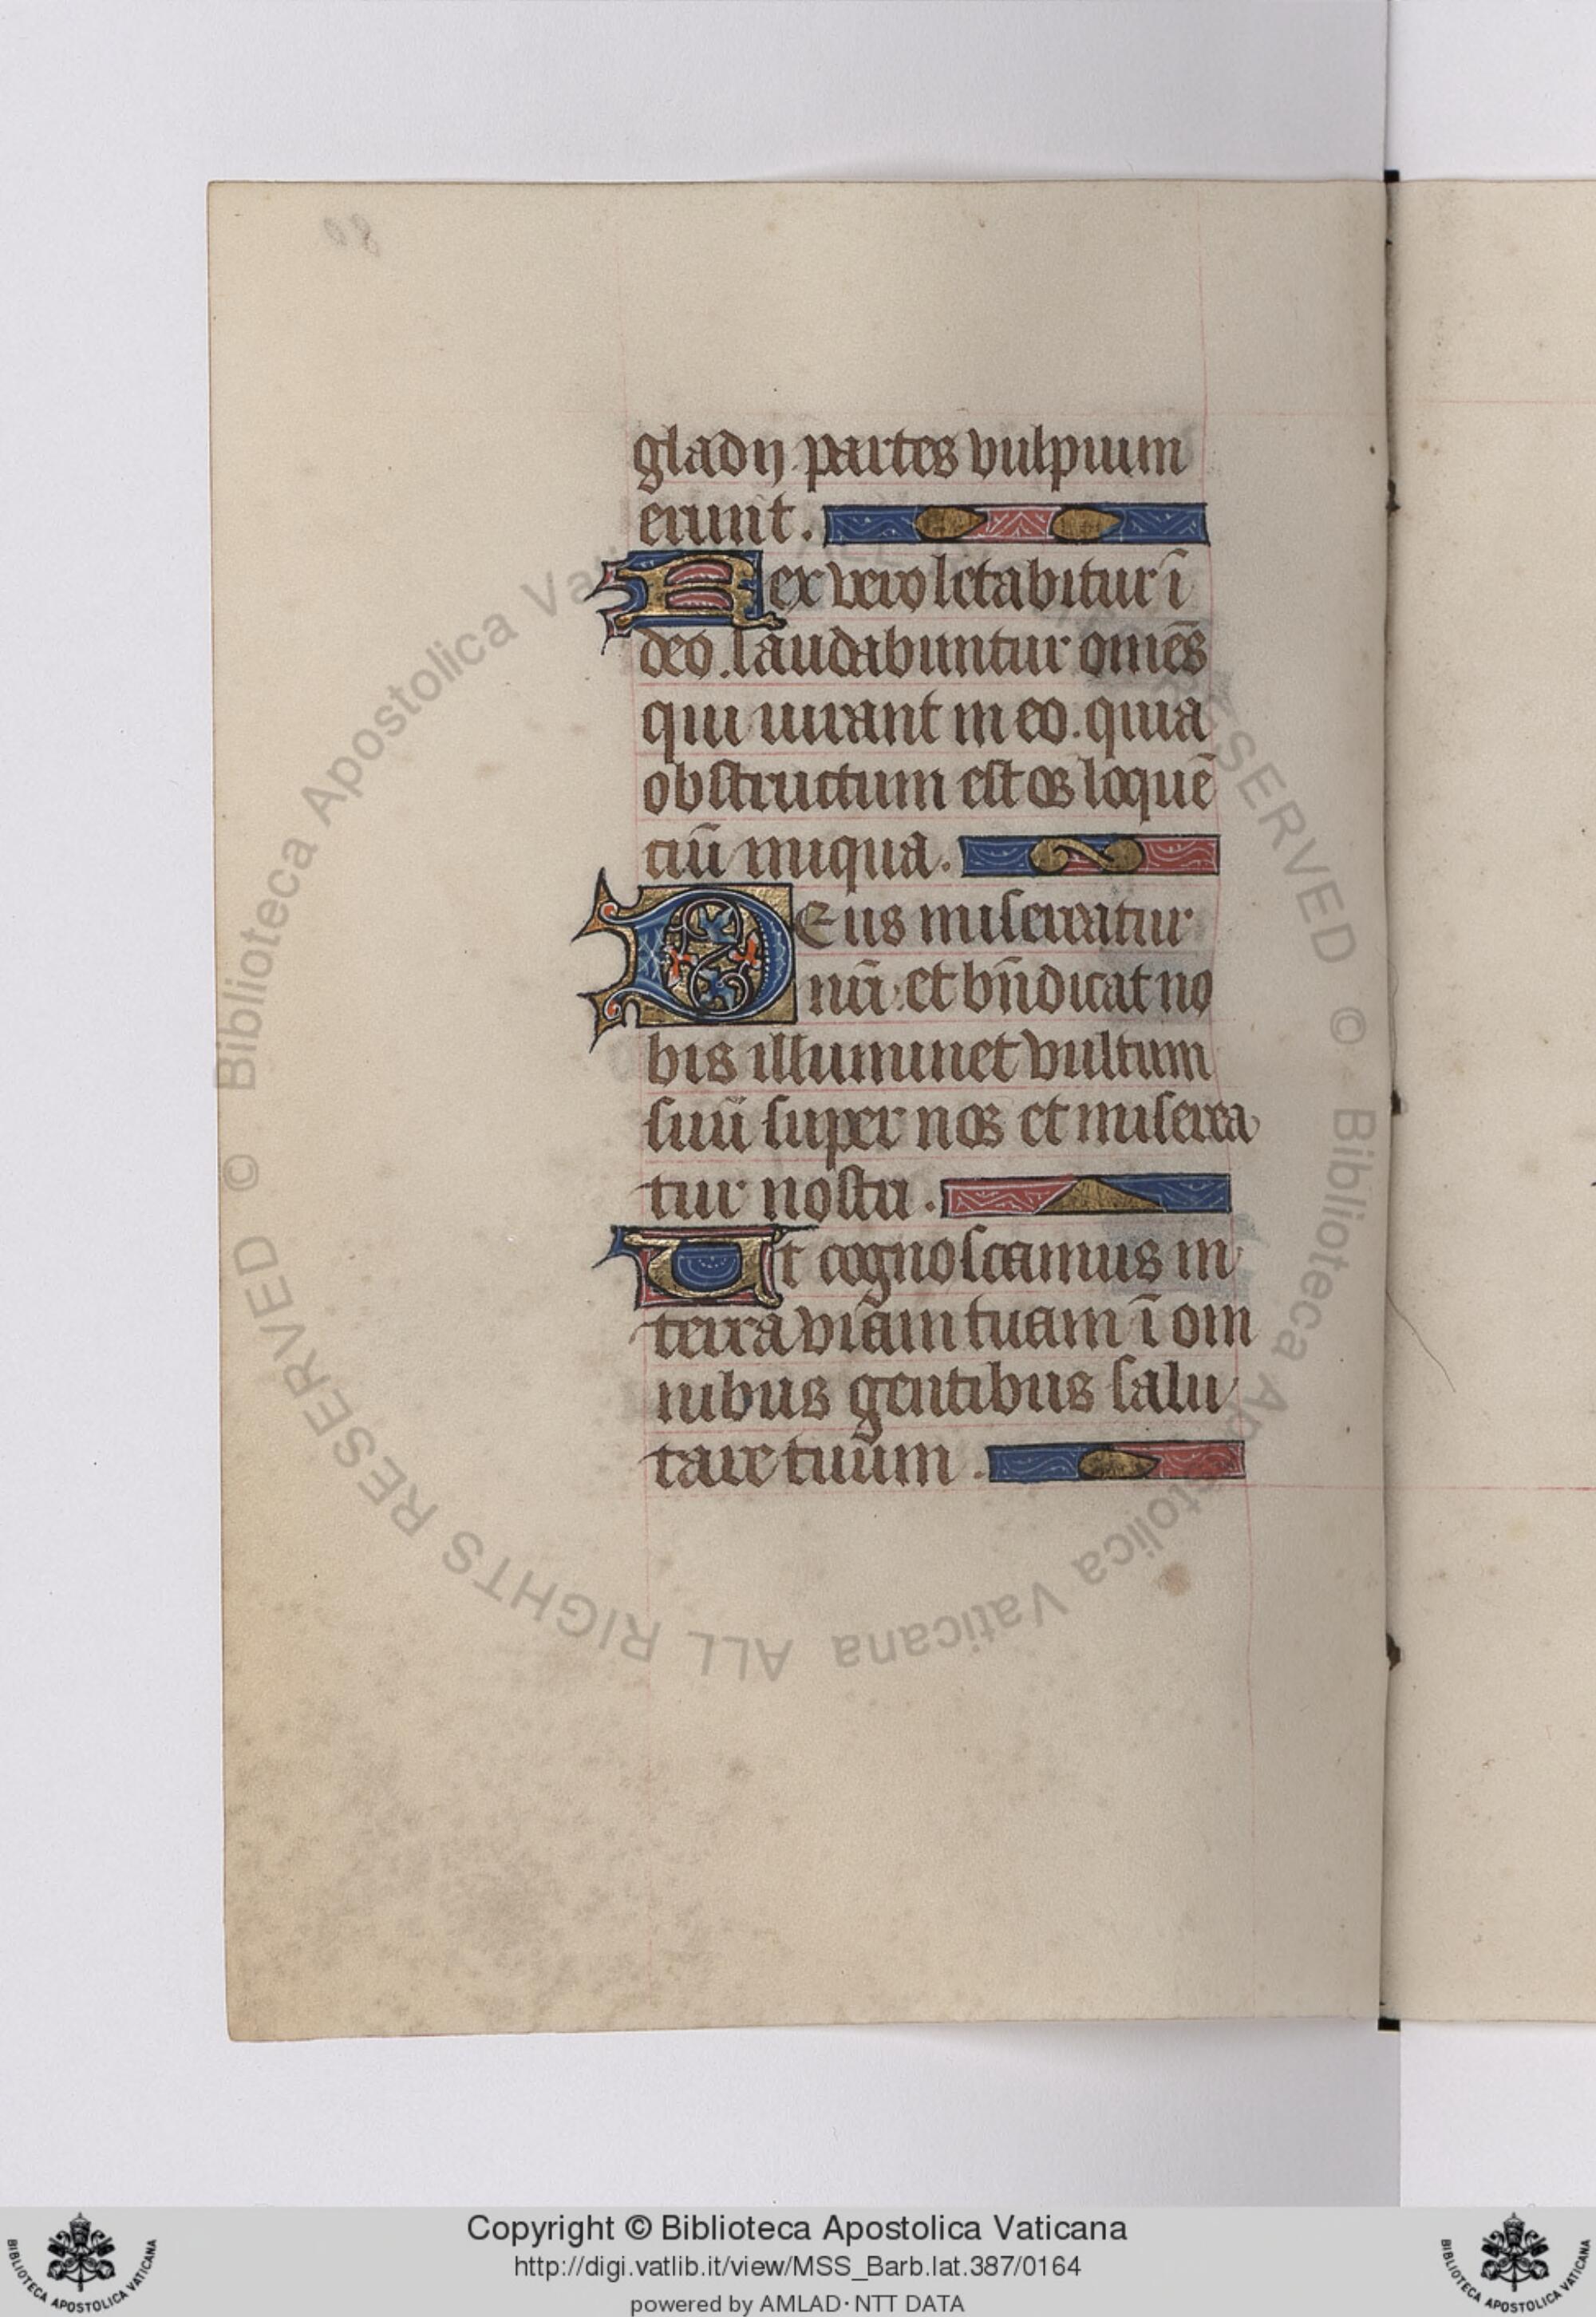 gladij partes vulpium
erunt.
Rex vero letabitur ī
deo. laudabuntur om̄es
qui iurant in eo. quia
obstructum est os loquē
ciū iniqua.
DEus misereatur
nr̄i et bn̄dicat no
bis illuminet vultum
suū super nos et miserea
tur nostri.
Ut cognoscamus in
terra viam tuam ī om
nibus gentibus salu
tare tuum.
© Biblioteca Apostolica Vaticana ALL RIGHTS RESERVED © Biblioteca Apostolica Vaticana ALL RIGHTS RESERVED
Copyright © Biblioteca Apostolica Vaticana
http://digi.vatlib.it/view/MSS_Barb.lat.387/0164
powered by AMLAD·NTT DATA
BIBLIOTECA APOSTOLICA VATICANA
BIBLIOTECA APOSTOLICA VATICANA